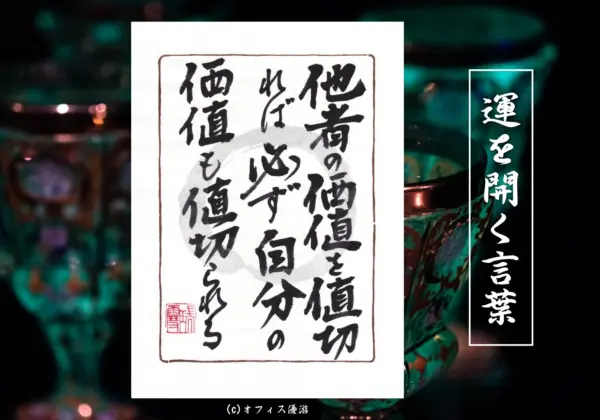 運を開く言葉
他者の価値を値切
れば必ず自分の
価値も値切られる
(c)オフィス優游